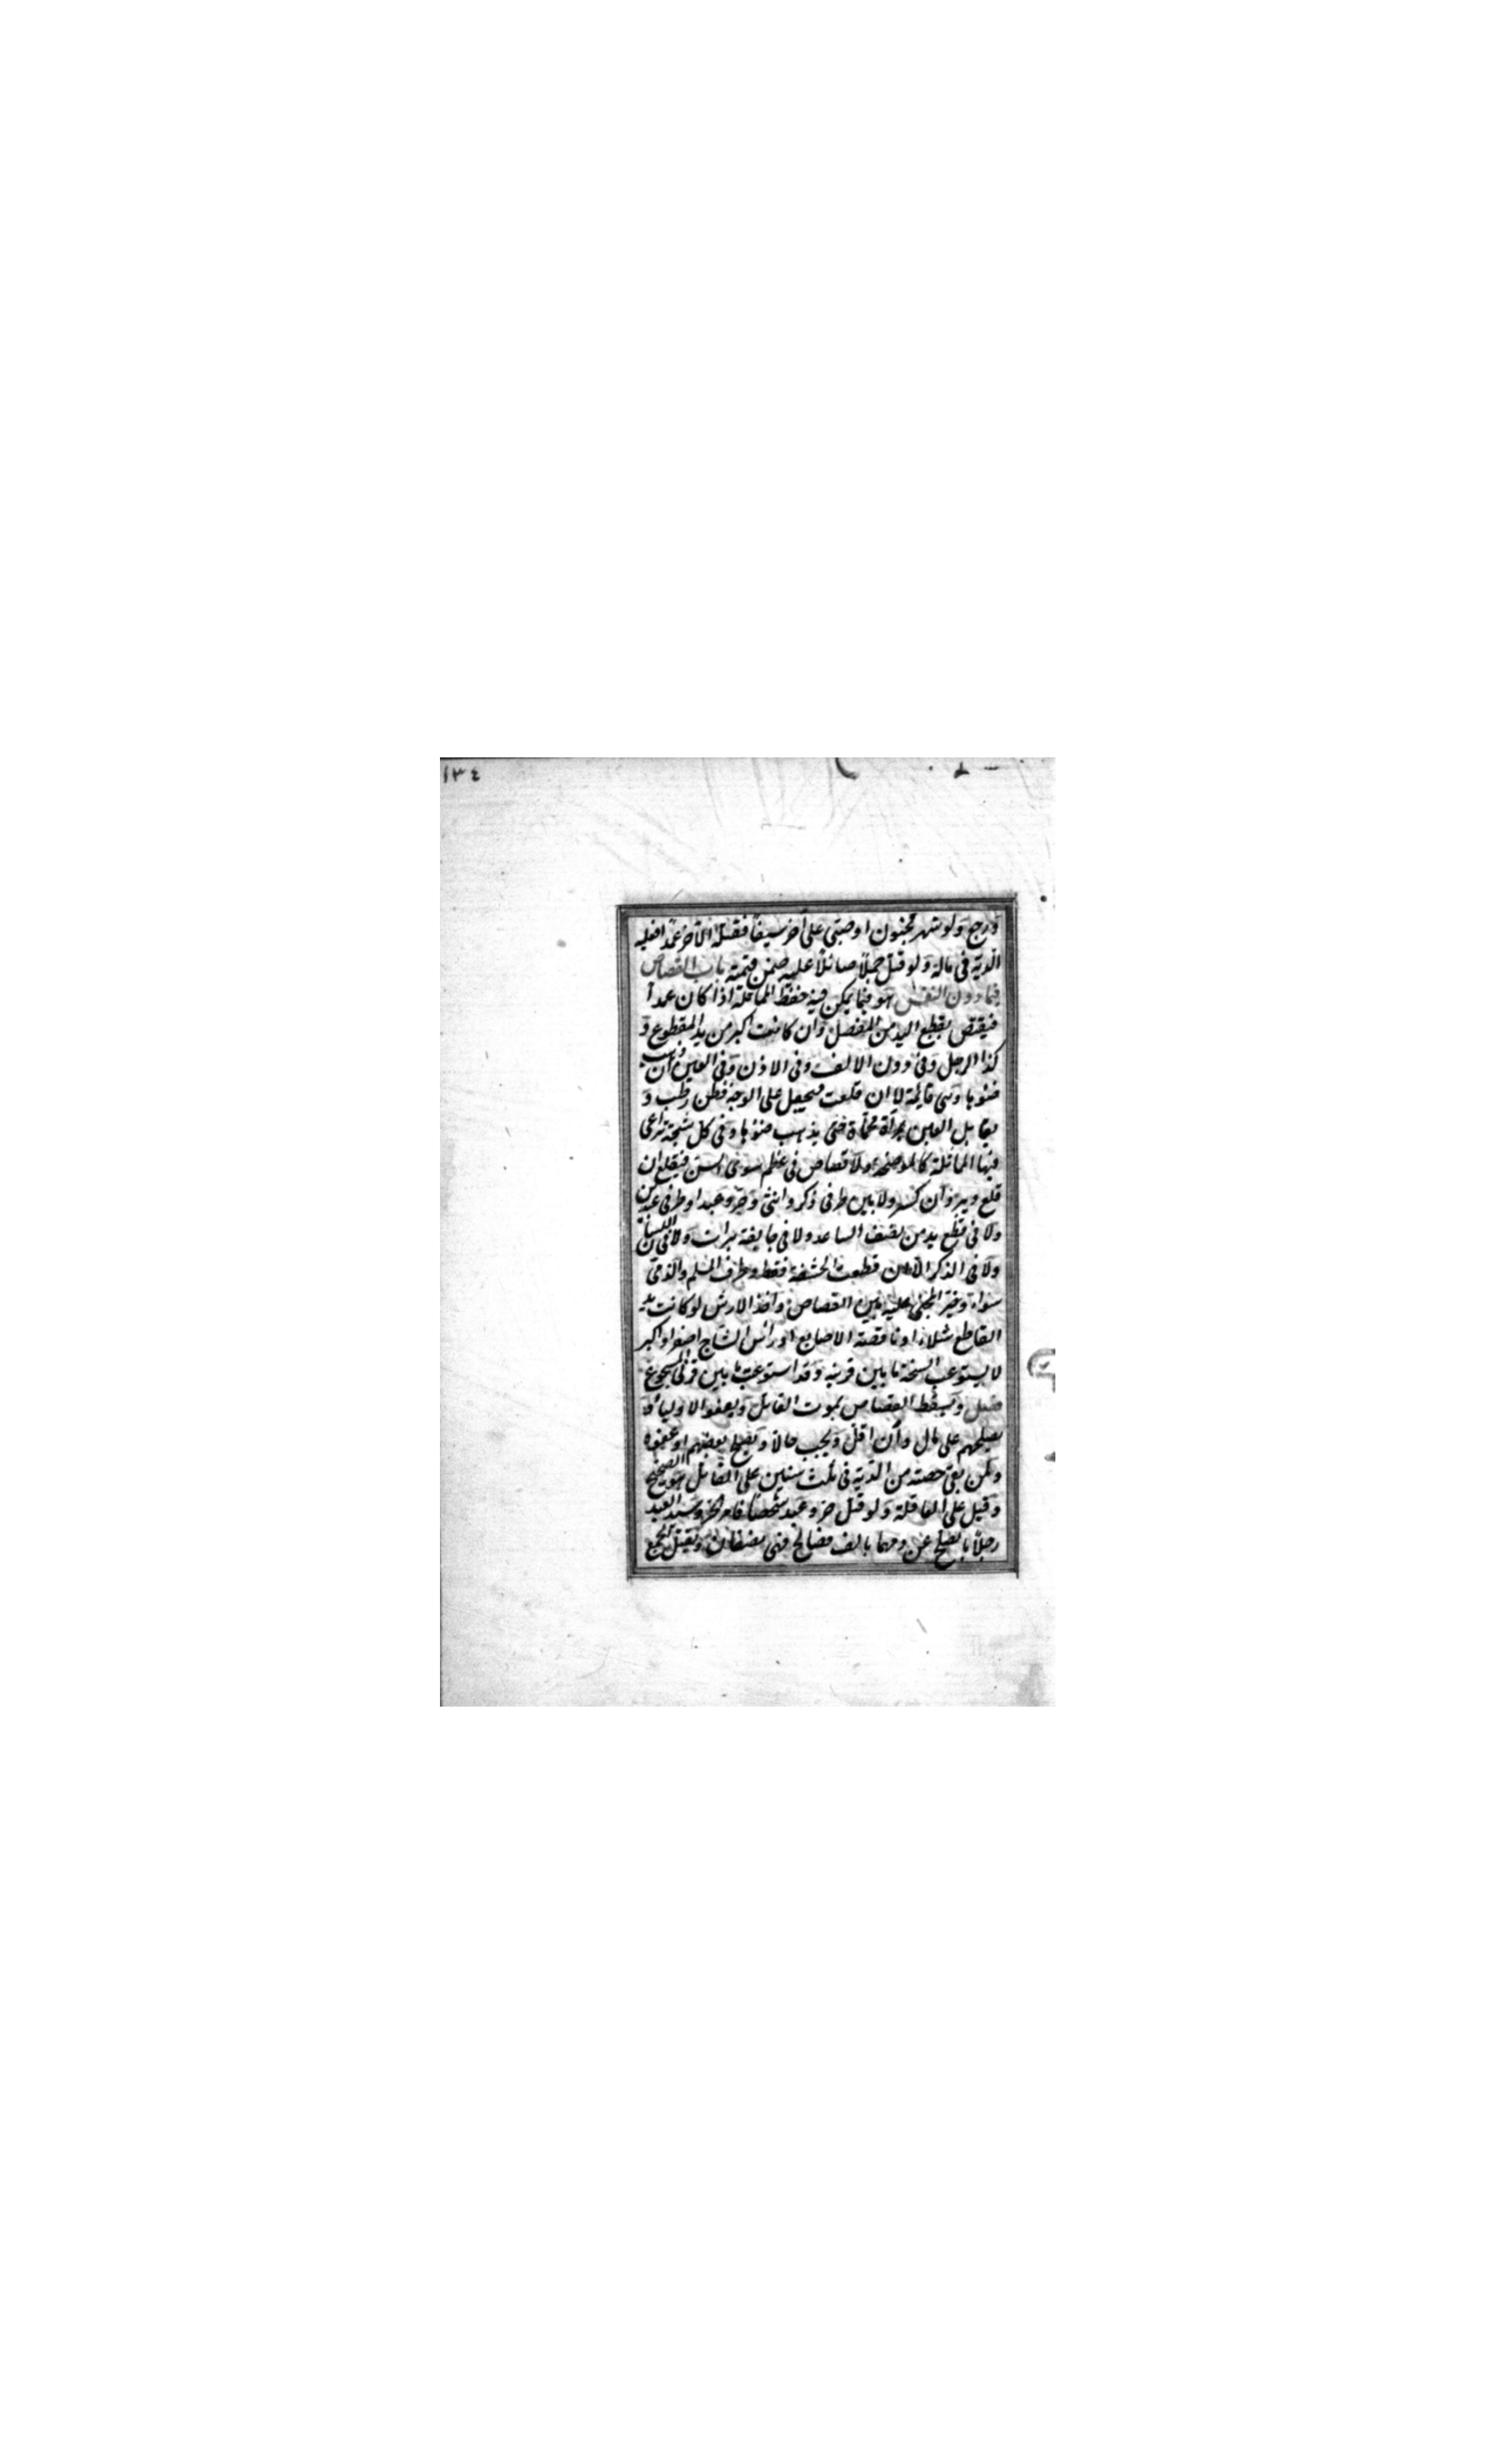 ١٣٤
ورجع ولو شهر مجنون او صبى على آخر سيفا فقتله الآخر عمدا فعليه
الدية فى ماله ولو قتل جملا صائلا عليه ضمن قيمته باب القصاص
فيما دون النفس هو فيما يمكن فيه حفظ المماثلة اذا كان عمدا
فيقتص بقطع اليد من المفصل وان كانت اكبر من يد المقطوع و
كذا الرجل وفى دون الانف وفى الاذن وفى العين ان ذهب
ضوءها وهى قائمة لا ان قلعت فيجعل على الوجه قطن رطب و
يقابل العين بمرآة محماة حتى يذهب ضوءها وفى كل شجة تراعى
فيها المماثلة كالموضحة ولا قصاص فى عظم سوى السن فيقلع ان
قلع ويبرد ان كسر ولا بين طرفى ذكر وانثى وحر وعبد او طرفى عبدين
ولا فى قطع يد من نصف الساعد ولا فى جايفة برات ولا فى اللسان
ولا فى الذكر الا ان قطعت الحشفة فقط وطرف المسلم والذمى
سواء وخير المجنى عليه بين القصاص واخذ الارش لو كانت يد
القاطع شلاء او ناقصة الاصابع او راس الشاج اصغر او اكبر
لا يستوعب الشجة ما بين قرنيه وقد استوعبت ما بين قرنى المشجوج
فصل ويسقط القصاص بموت القاتل وبعفو الاولياء و
بصلحهم على مال وان اقل ويجب حالا وبصلح بعضهم او عفوه
ولمن بقى حصته من الدية فى ثلث سنين على القاتل هو الصحيح
وقيل على العاقلة ولو قتل حر وعبد شخصا فامر الحر وسيد العبد
رجلا بالصلح عن دمهما بالف فصالح فهى نصفان ويقتل الجمع